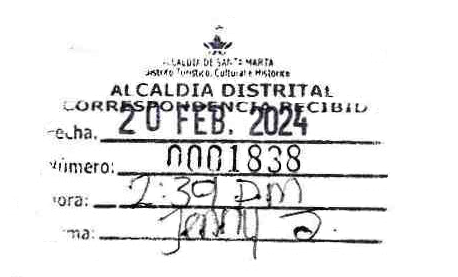 ALCALDIA DE SANTA MARTA
Distrito Turístico, Cultural e Histórico
ALCALDIA DISTRITAL
CORRESPONDENCIA RECIBID
echa. 20 FEB. 2024
úmero: 0001838
ora: 2:39 pm
ma: Jenny J.